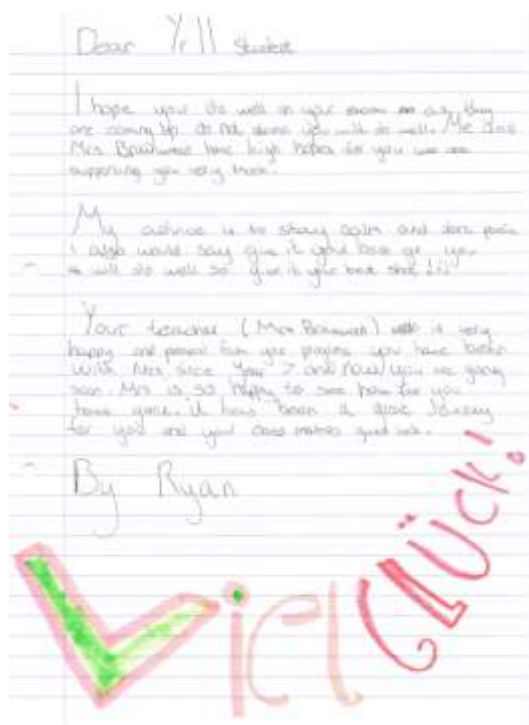 Dear Yr 11 Student
I hope you do well on your exams as they
are coming up do not stress you will do well. Me and
Mrs have high hopes for you we are
supporting you very much.
My advice is to stay calm and dont panic
I also would say give it your best go you
will do well so give it your best shot !!!
Your teacher (Mrs ) is very
happy and proud from your progress you have been
with Mrs since Year 7 and now you are going
soon. Mrs is so happy to see how far you
have gone. it has been a great Journey
for you and your class mates good luck.
By Ryan
Viel GLÜCK!